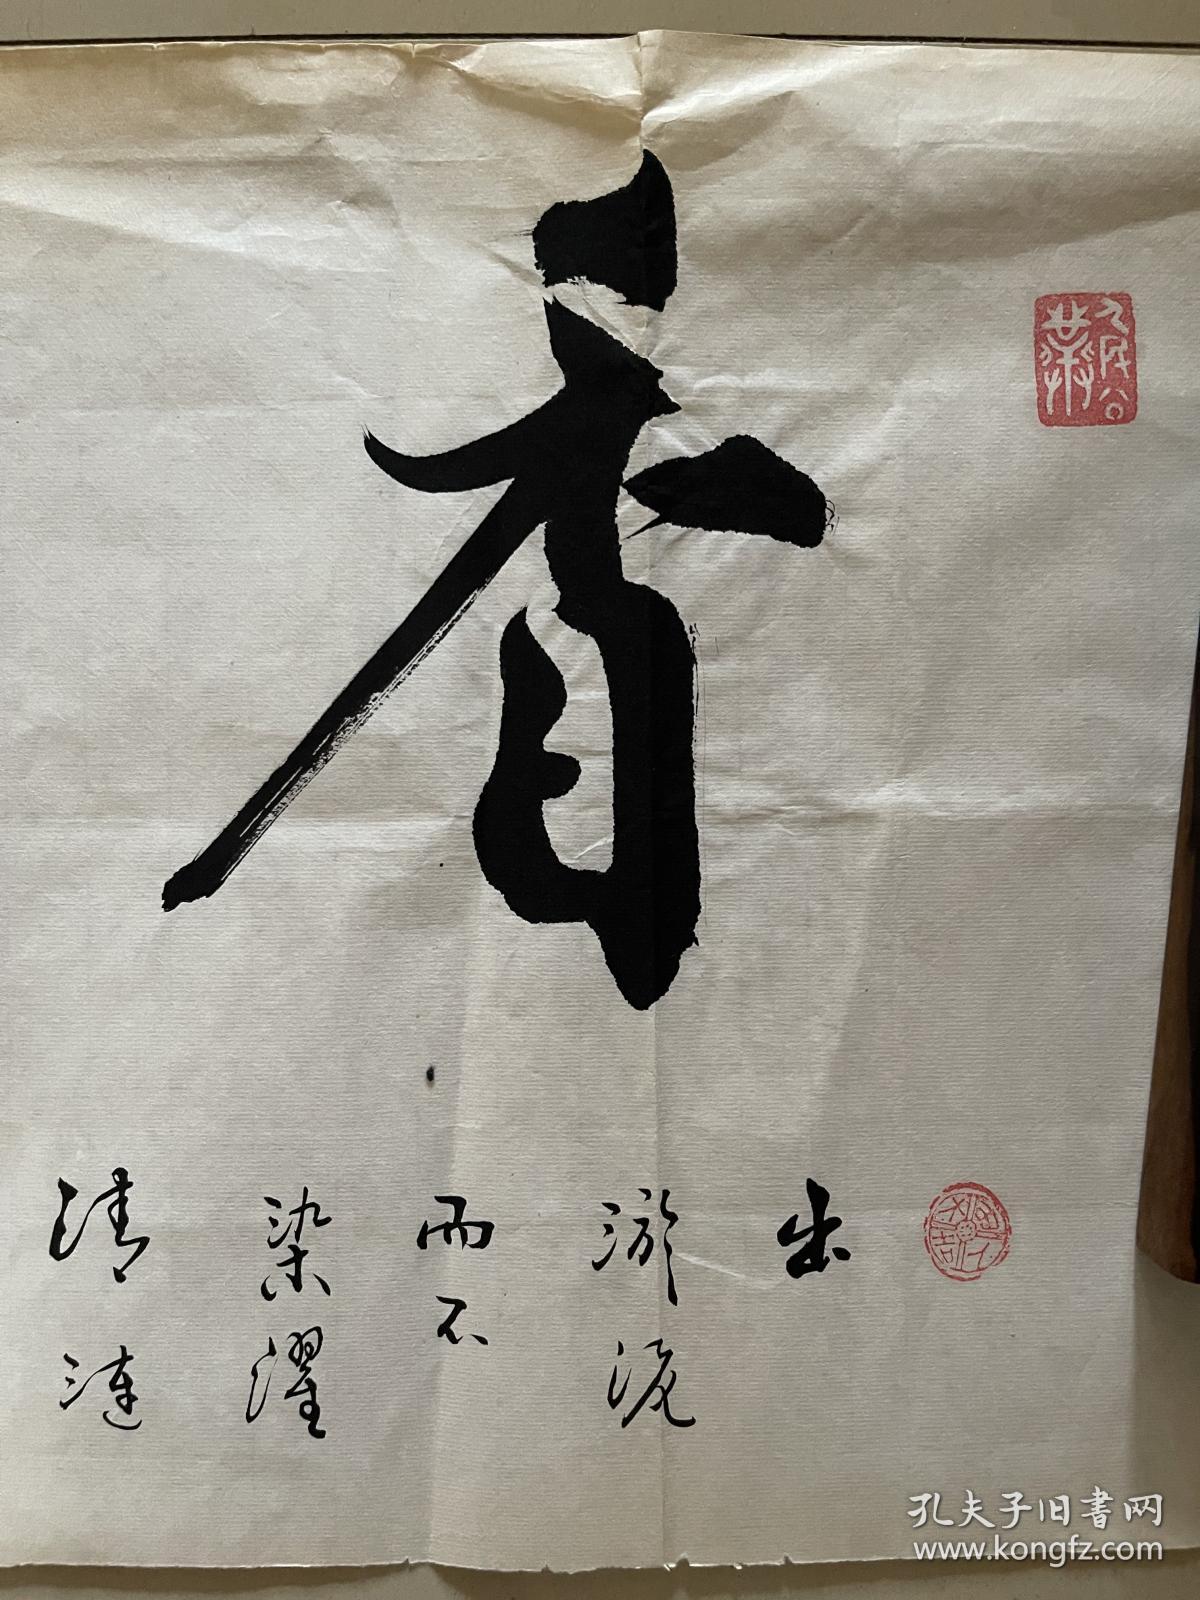 香
出
淤泥
而不
染濯
清涟
孔夫子旧书网
www.kongfz.com